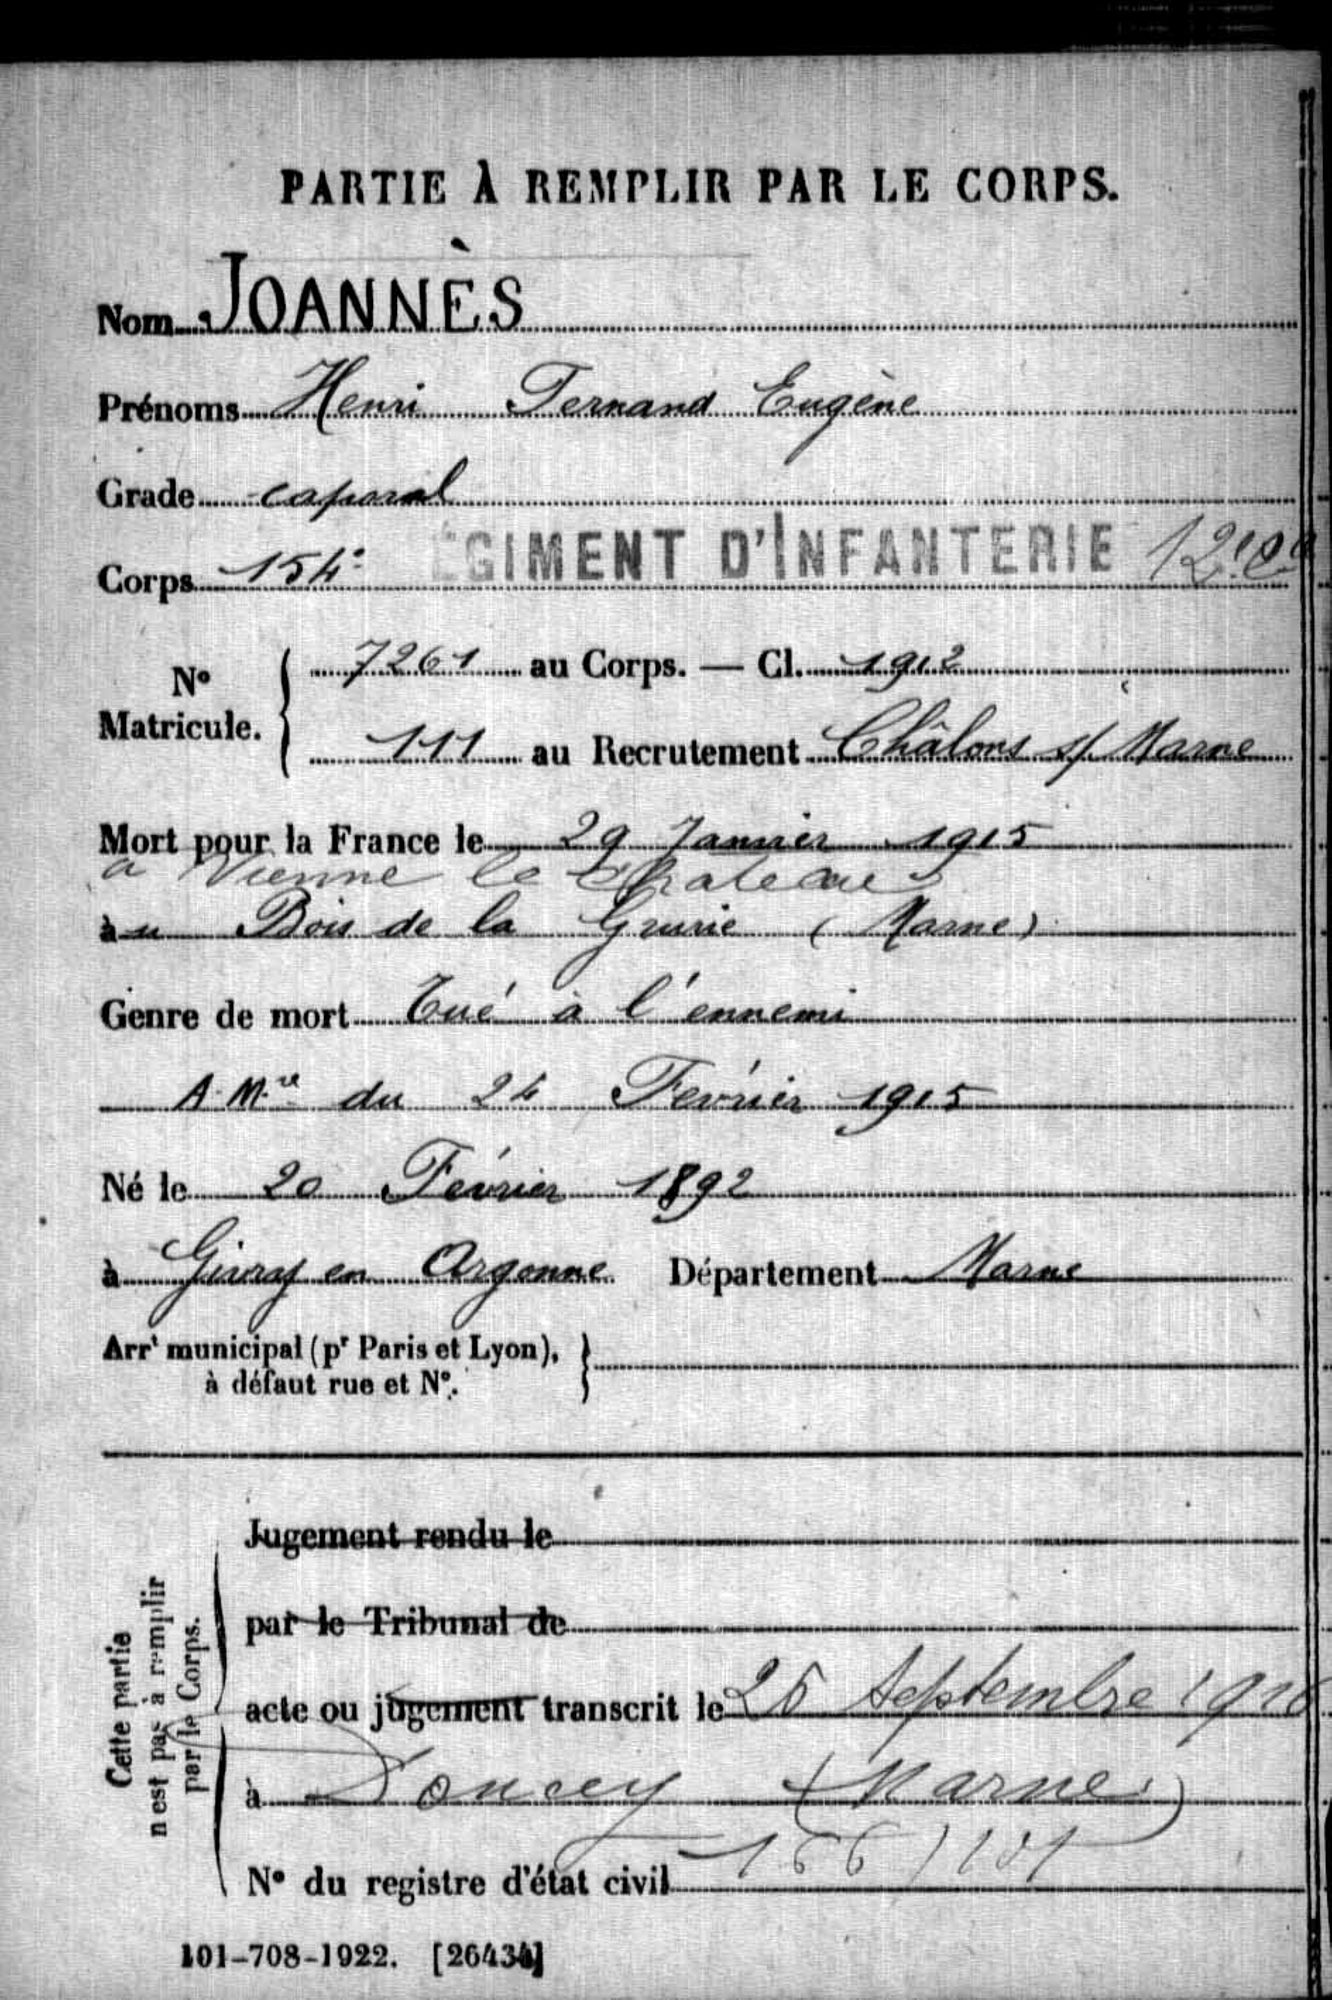 PARTIE À REMPLIR PAR LE CORPS.
Nom JOANNÈS
Prénoms Henri Fernand Eugène
Grade caporal
Corps 154e ÉGIMENT D'INFANTERIE 12e Cie
No Matricule. 7261 au Corps. — Cl. 1912
111 au Recrutement Châlons s/ Marne
Mort pour la France le 29 Janvier 1915
a Vienne le Chateau
au Bois de la Grurie (Marne)
Genre de mort Tué à l'ennemi
A. Mre du 24 Février 1915
Né le 20 Février 1892
à Givry en Argonne Département Marne
Arrt municipal (pr Paris et Lyon),
à défaut rue et No.
Cette partie
n'est pas à remplir
par le Corps.
Jugement rendu le
par le Tribunal de
acte ou jugement transcrit le 25 Septembre
à Poncey (Marne)
No du registre d'état civil 166/
101-708-1922. [26434]